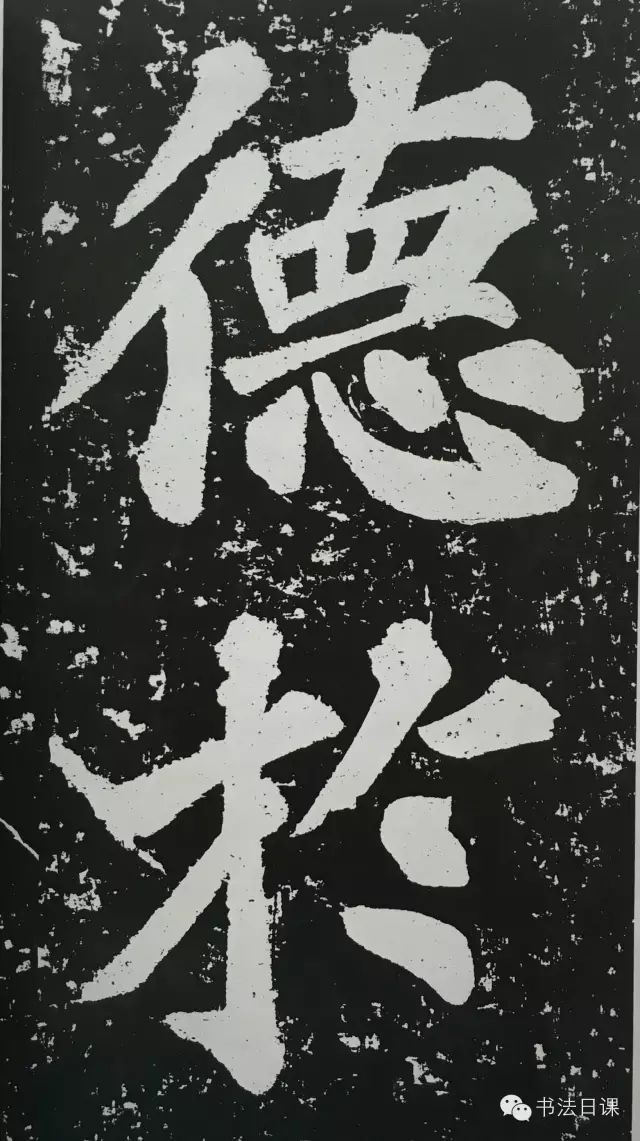 德
於
书法日课